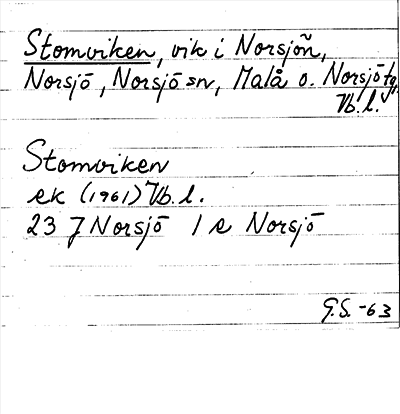 Stomviken, vik i Norsjön,
Norsjö, Norsjö sn, Malå o. Norsjö tg,
Vb. l.
Stomviken
ek (1961) Vb. l.
23 J Norsjö 1 e Norsjö
G.S. -63